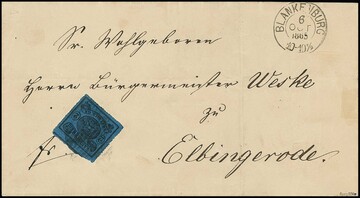 BLANKENBURG
6
OCT
1865
10-10½
Sr. Wohlgeboren
Herrn Bürgermeister Weske
zu
Elbingerode.
fr.